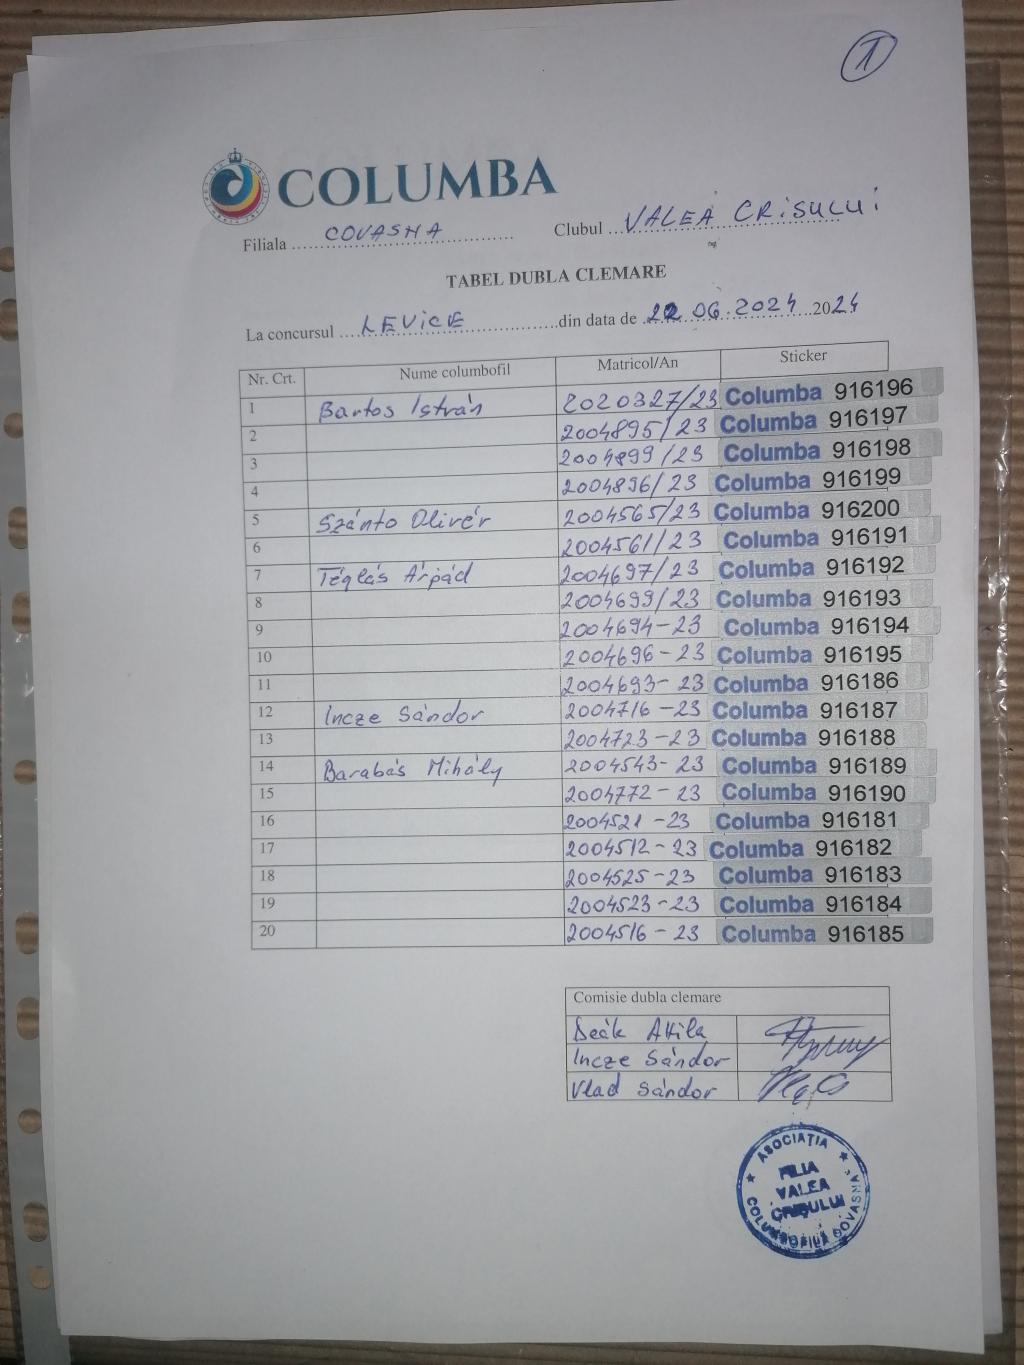 1
COLUMBA
Filiala ... COVASNA ... Clubul ... VALEA CRISULUI
TABEL DUBLA CLEMARE
La concursul ... LEVICE ... din data de ... 22.06.2024 ... 2024
Nr. Crt. Nume columbofil Matricol/An Sticker
1 Bartos István 2020327/23 Columba 916196
2 2004895/23 Columba 916197
3 2004899/23 Columba 916198
4 2004896/23 Columba 916199
5 Szánto Olivér 2004565/23 Columba 916200
6 2004561/23 Columba 916191
7 Téglás Árpád 2004697/23 Columba 916192
8 2004699/23 Columba 916193
9 2004694-23 Columba 916194
10 2004696-23 Columba 916195
11 2004693-23 Columba 916186
12 Incze Sándor 2004716-23 Columba 916187
13 2004723-23 Columba 916188
14 Barabás Mihály 2004543-23 Columba 916189
15 2004772-23 Columba 916190
16 2004521-23 Columba 916181
17 2004512-23 Columba 916182
18 2004525-23 Columba 916183
19 2004523-23 Columba 916184
20 2004516-23 Columba 916185
Comisie dubla clemare
Deák Attila
Incze Sándor
Vlad Sándor
ASOCIAȚIA
FILIA
VALEA
CRIȘULUI
COLUMBOFILĂ COVASNA